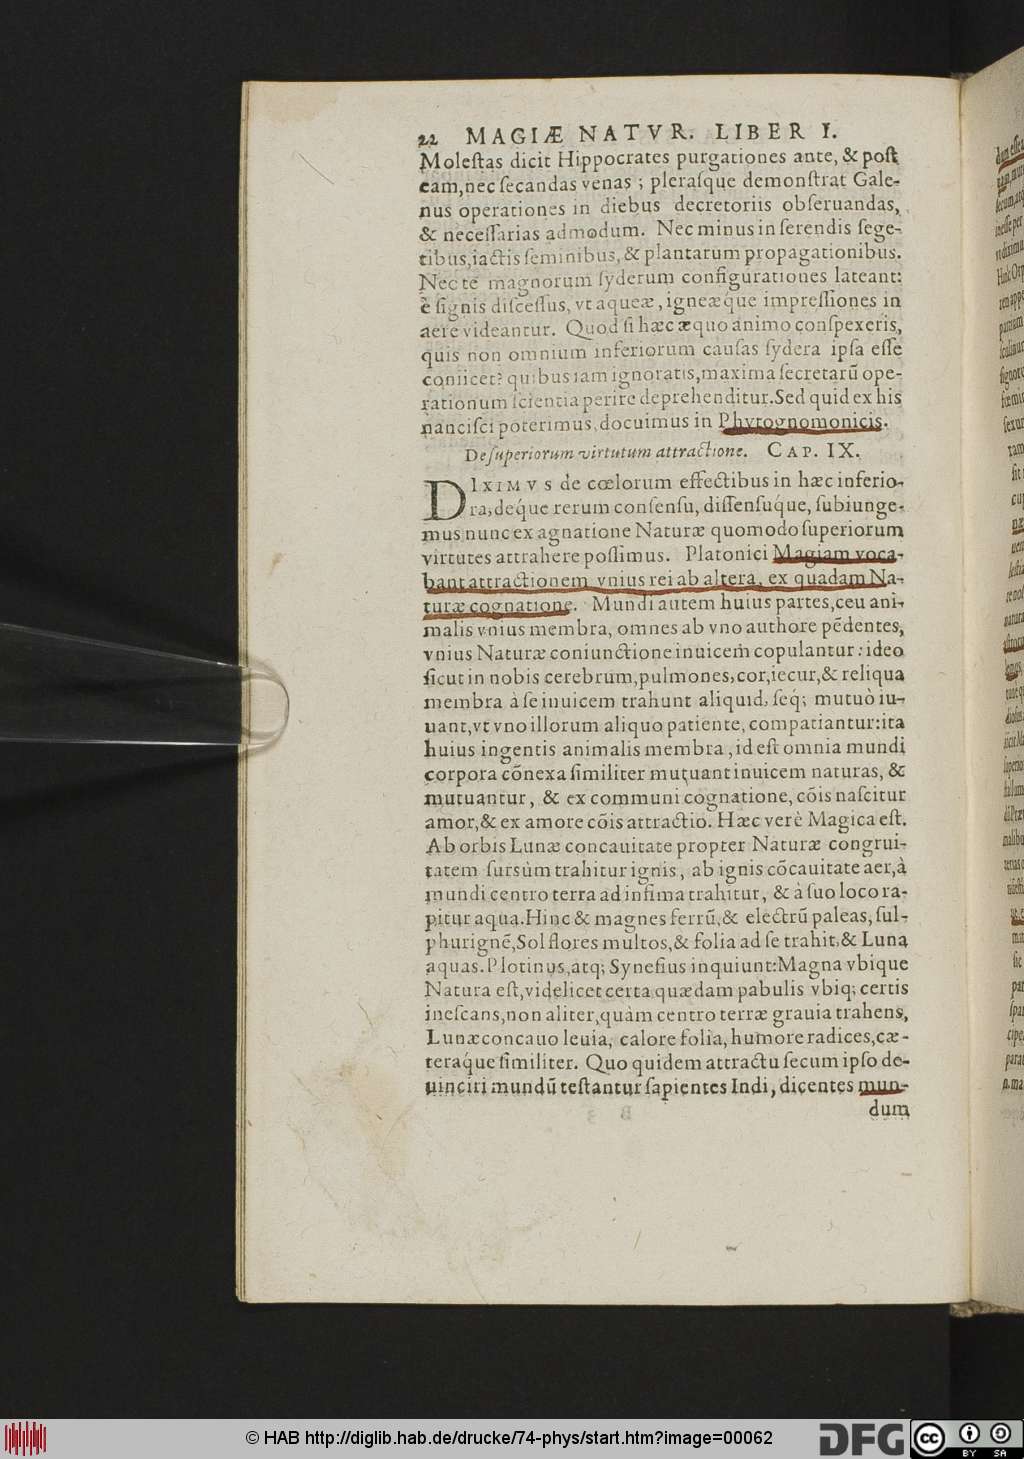 22 MAGIÆ NATVR. LIBER I.
Moleſtas dicit Hippocrates purgationes ante, & poſt
eam, nec ſecandas venas ; pleraſque demonſtrat Gale-
nus operationes in diebus decretoriis obſeruandas,
& neceſſarias admodum. Nec minus in ſerendis ſege-
tibus, iactis ſeminibus, & plantarum propagationibus.
Nec te magnorum ſyderum configurationes lateant:
è ſignis diſceſſus, vt aqueæ, igneæque impreſſiones in
aere videantur. Quod ſi hæc æquo animo conſpexeris,
quis non omnium inferiorum cauſas ſydera ipſa eſſe
coniicet? quibus iam ignoratis, maxima ſecretarũ ope-
rationum ſcientia perire deprehenditur. Sed quid ex his
nanciſci poterimus, docuimus in Phytognomonicis.
De ſuperiorum virtutum attractione. CAP. IX.
DIXIMVS de cœlorum effectibus in hæc inferio-
ra, deq́ue rerum conſenſu, diſſenſuq́ue, ſubiunge-
mus nunc ex agnatione Naturæ quomodo ſuperiorum
virtutes attrahere poſſimus. Platonici Magiam voca-
bant attractionem vnius rei ab altera, ex quadam Na-
turæ cognatione. Mundi autem huius partes, ceu ani-
malis vnius membra, omnes ab vno authore pēdentes,
vnius Naturæ coniunctione inuicem copulantur : ideo
ſicut in nobis cerebrum, pulmones, cor, iecur, & reliqua
membra à ſe inuicem trahunt aliquid, ſeq́; mutuò iu-
uant, vt vno illorum aliquo patiente, compatiantur: ita
huius ingentis animalis membra, id eſt omnia mundi
corpora cōnexa ſimiliter mutuant inuicem naturas, &
mutuantur, & ex communi cognatione, cōis naſcitur
amor, & ex amore cōis attractio. Hæc verè Magica eſt.
Ab orbis Lunæ concauitate propter Naturæ congrui-
tatem ſursùm trahitur ignis, ab ignis cōcauitate aer, à
mundi centro terra ad infima trahitur, & à ſuo loco ra-
pitur aqua. Hinc & magnes ferrũ, & electrũ paleas, ſul-
phur ignē, Sol flores multos, & folia ad ſe trahit, & Luna
aquas. Plotinus, atq; Syneſius inquiunt: Magna vbique
Natura eſt, videlicet certa quædam pabulis vbiq; certis
ineſcans, non aliter, quàm centro terræ grauia trahens,
Lunæ concauo leuia, calore folia, humore radices, cæ-
teraq́ue ſimiliter. Quo quidem attractu ſecum ipſo de-
uinciri mundũ teſtantur ſapientes Indi, dicentes mun-
dum
© HAB http://diglib.hab.de/drucke/74-phys/start.htm?image=00062
DFG
cc BY SA